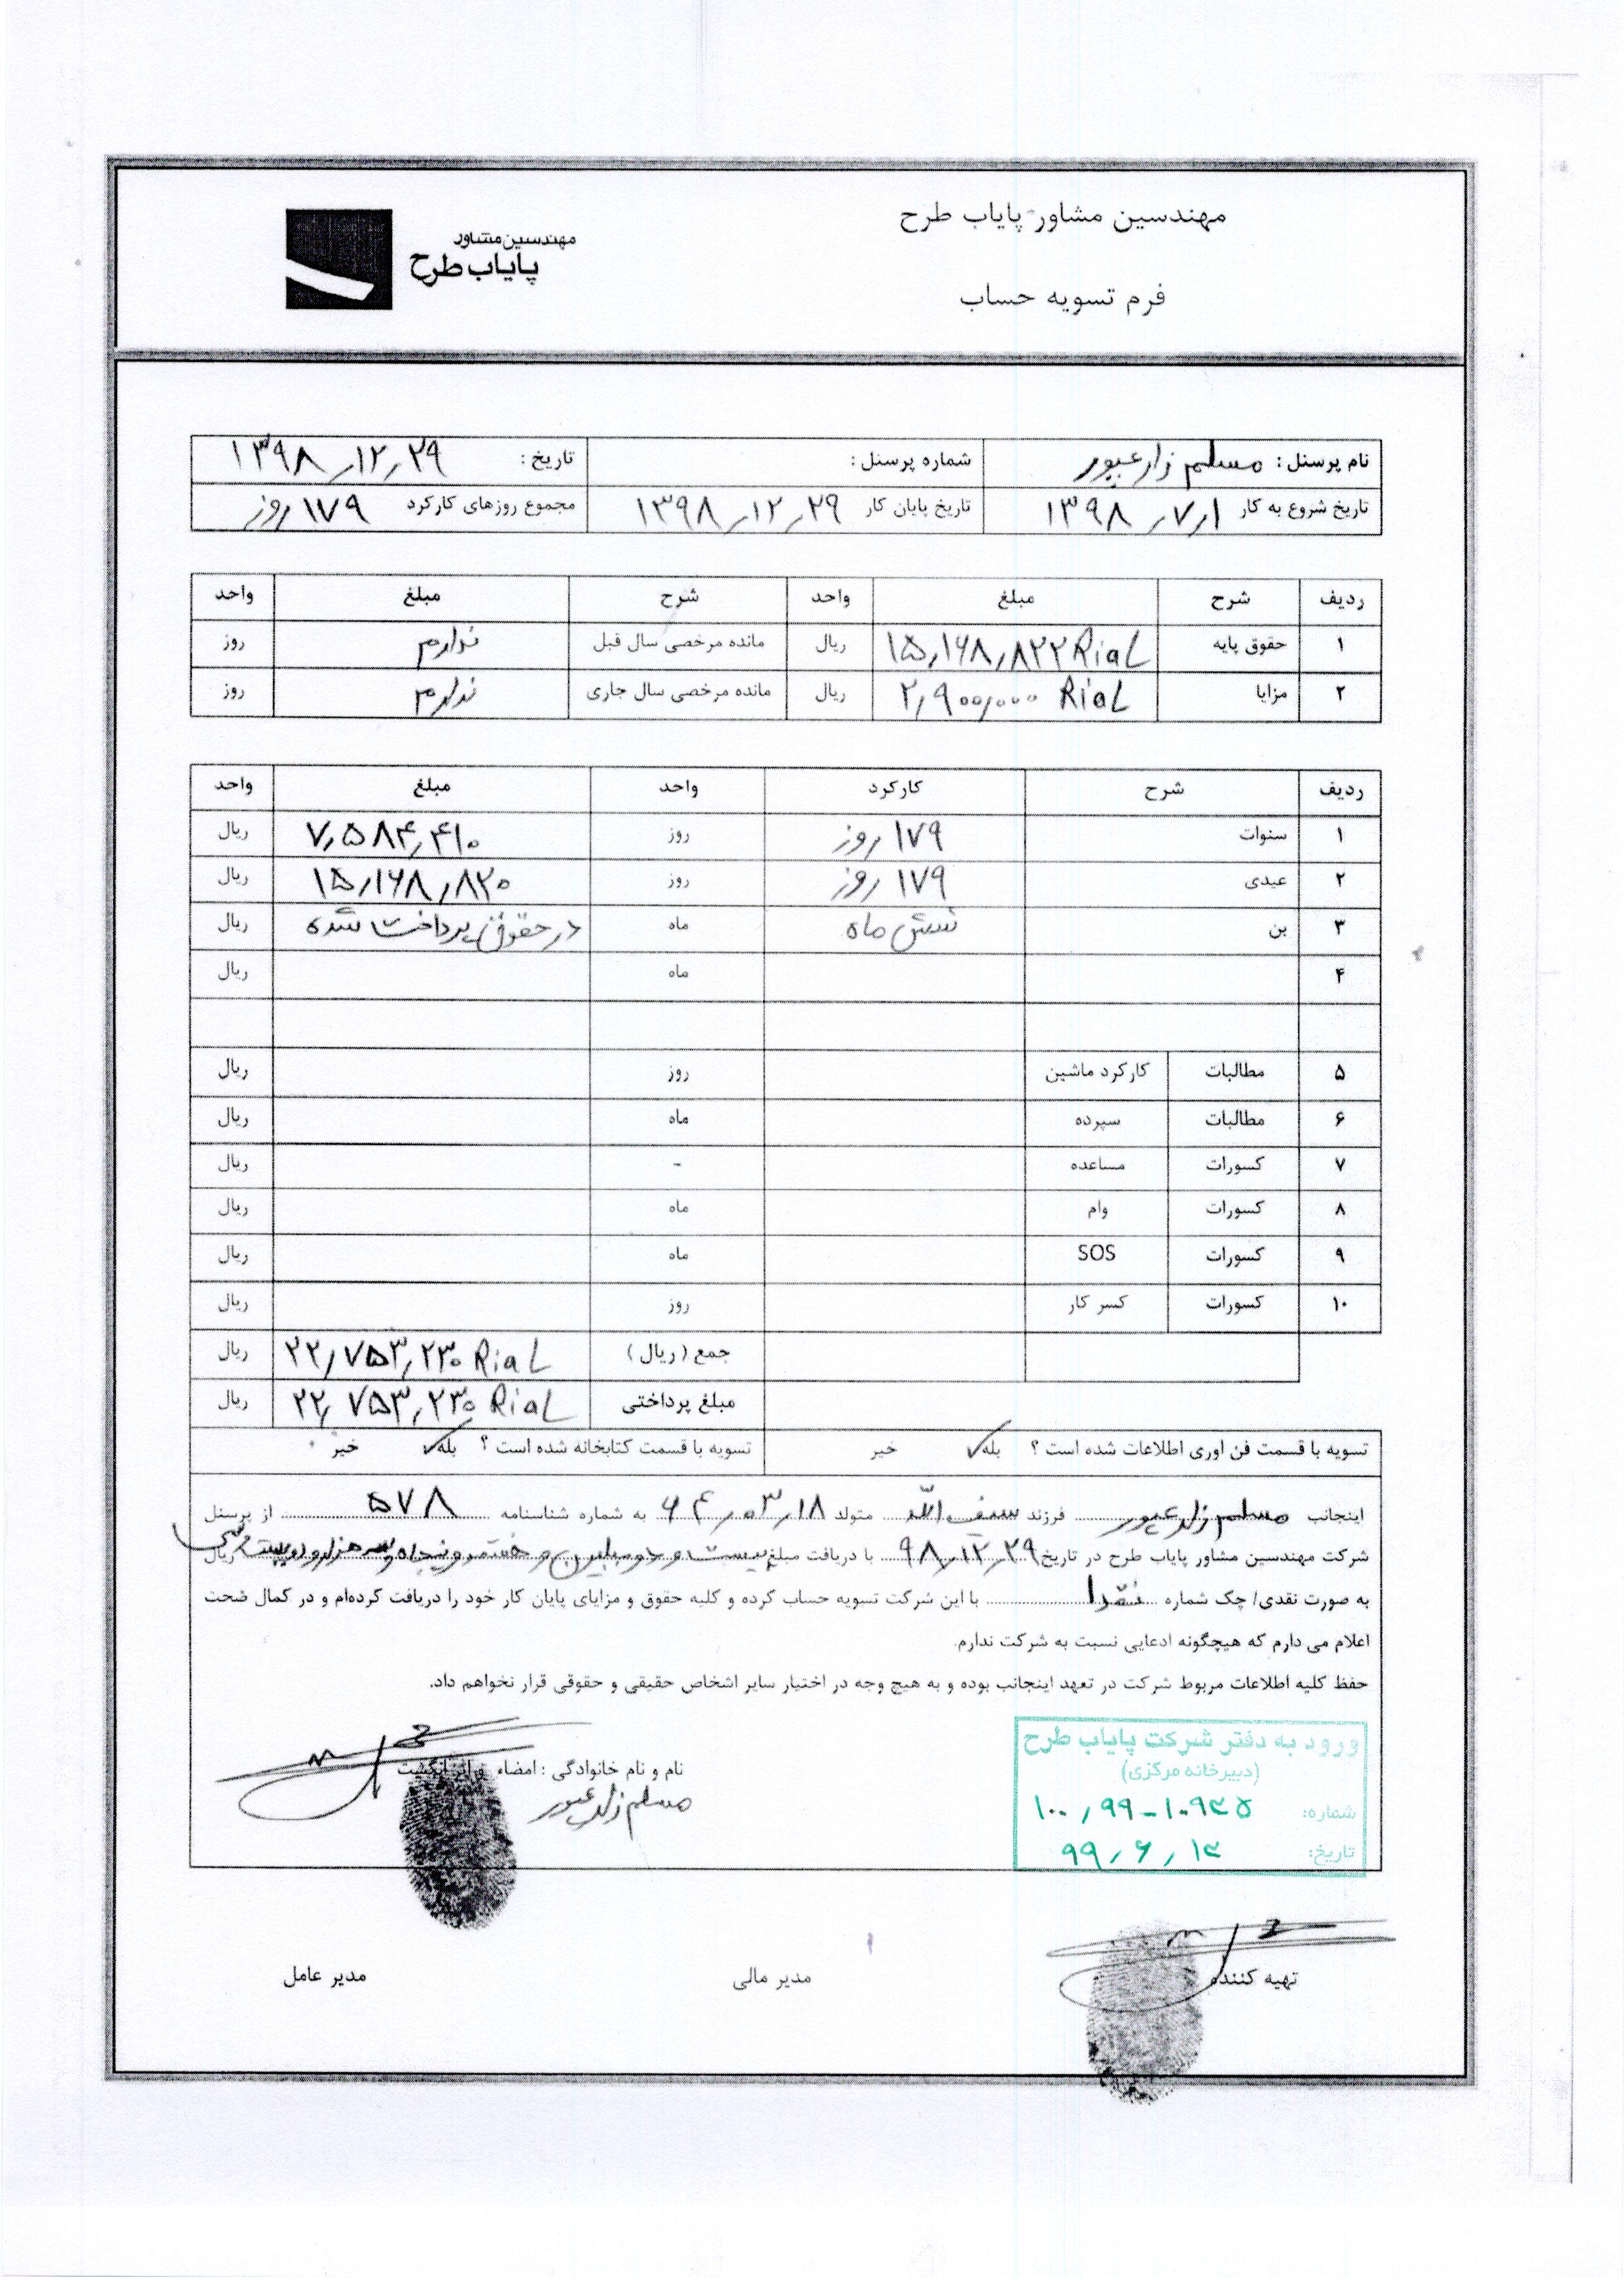 مهندسین مشاور پایاب طرح
مهندسین مشاور
پایاب طرح
فرم تسویه حساب
نام پرسنل : مسلم زارعپور شماره پرسنل : تاریخ : ۱۳۹۸٫۱۲٫۲۹
تاریخ شروع به کار ۱۳۹۸٫۷٫۱ تاریخ پایان کار ۱۳۹۸٫۱۲٫۲۹ مجموع روزهای کارکرد ۱۷۹ روز
ردیف شرح مبلغ واحد شرح مبلغ واحد
۱ حقوق پایه ۱۵٫۱۶۸٫۸۲۲ RiaL ریال مانده مرخصی سال قبل ندارم روز
۲ مزایا ۲٫۹۰۰٫۰۰۰ RiaL ریال مانده مرخصی سال جاری ندارم روز
ردیف شرح کارکرد واحد مبلغ واحد
۱ سنوات ۱۷۹ روز روز ۷٫۵۸۴٫۴۱۰ ریال
۲ عیدی ۱۷۹ روز روز ۱۵٫۱۶۸٫۸۲۰ ریال
۳ بن شش ماه ماه در حقوق پرداخت شده ریال
۴ ماه ریال
۵ مطالبات کارکرد ماشین روز ریال
۶ مطالبات سپرده ماه ریال
۷ کسورات مساعده - ریال
۸ کسورات وام ماه ریال
۹ کسورات SOS ماه ریال
۱۰ کسورات کسر کار روز ریال
جمع (ریال) ۲۲٫۷۵۳٫۲۳۰ RiaL ریال
مبلغ پرداختی ۲۲٫۷۵۳٫۲۳۰ RiaL ریال
تسویه با قسمت فن اوری اطلاعات شده است ؟ بله ✓ خیر تسویه با قسمت کتابخانه شده است ؟ بله ✓ خیر
اینجانب مسلم زارعپور فرزند سیف الله متولد ۶۴٫۰۳٫۱۸ به شماره شناسنامه ۵۷۸ از پرسنل
شرکت مهندسین مشاور پایاب طرح در تاریخ ۹۸٫۱۲٫۲۹ با دریافت مبلغ بیست و دو میلیون و هفتصد و پنجاه و سه هزار و دویست و سی ریال
به صورت نقدی/ چک شماره نقدا با این شرکت تسویه حساب کرده و کلیه حقوق و مزایای پایان کار خود را دریافت کرده‌ام و در کمال صحت
اعلام می دارم که هیچگونه ادعایی نسبت به شرکت ندارم.
حفظ کلیه اطلاعات مربوط شرکت در تعهد اینجانب بوده و به هیچ وجه در اختیار سایر اشخاص حقیقی و حقوقی قرار نخواهم داد.
ورود به دفتر شرکت پایاب طرح
(دبیرخانه مرکزی)
شماره: ۱۰۰٫۹۹-۱۰۹۴۵
تاریخ: ۹۹٫۶٫۱۴
نام و نام خانوادگی : امضاء و اثر انگشت
مسلم زارعپور
تهیه کننده مدیر مالی مدیر عامل